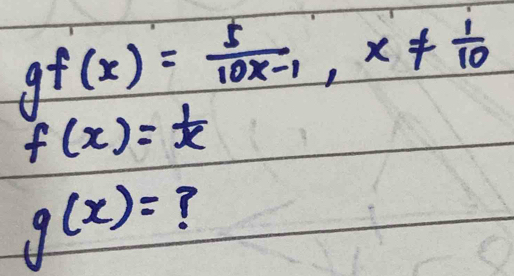 gf(x) = 5/(10x-1) , x ≠ 1/10
f(x) = 1/x
g(x) = ?